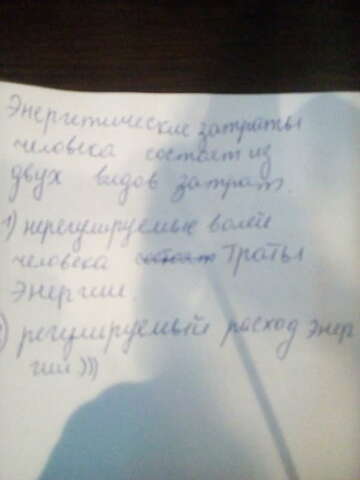 Энергетические затраты
человека состоят из
двух видов затрат.
1) нерегулируемые волей
человека состоят траты
энергии.
2) регулируемый расход энер
гии)))